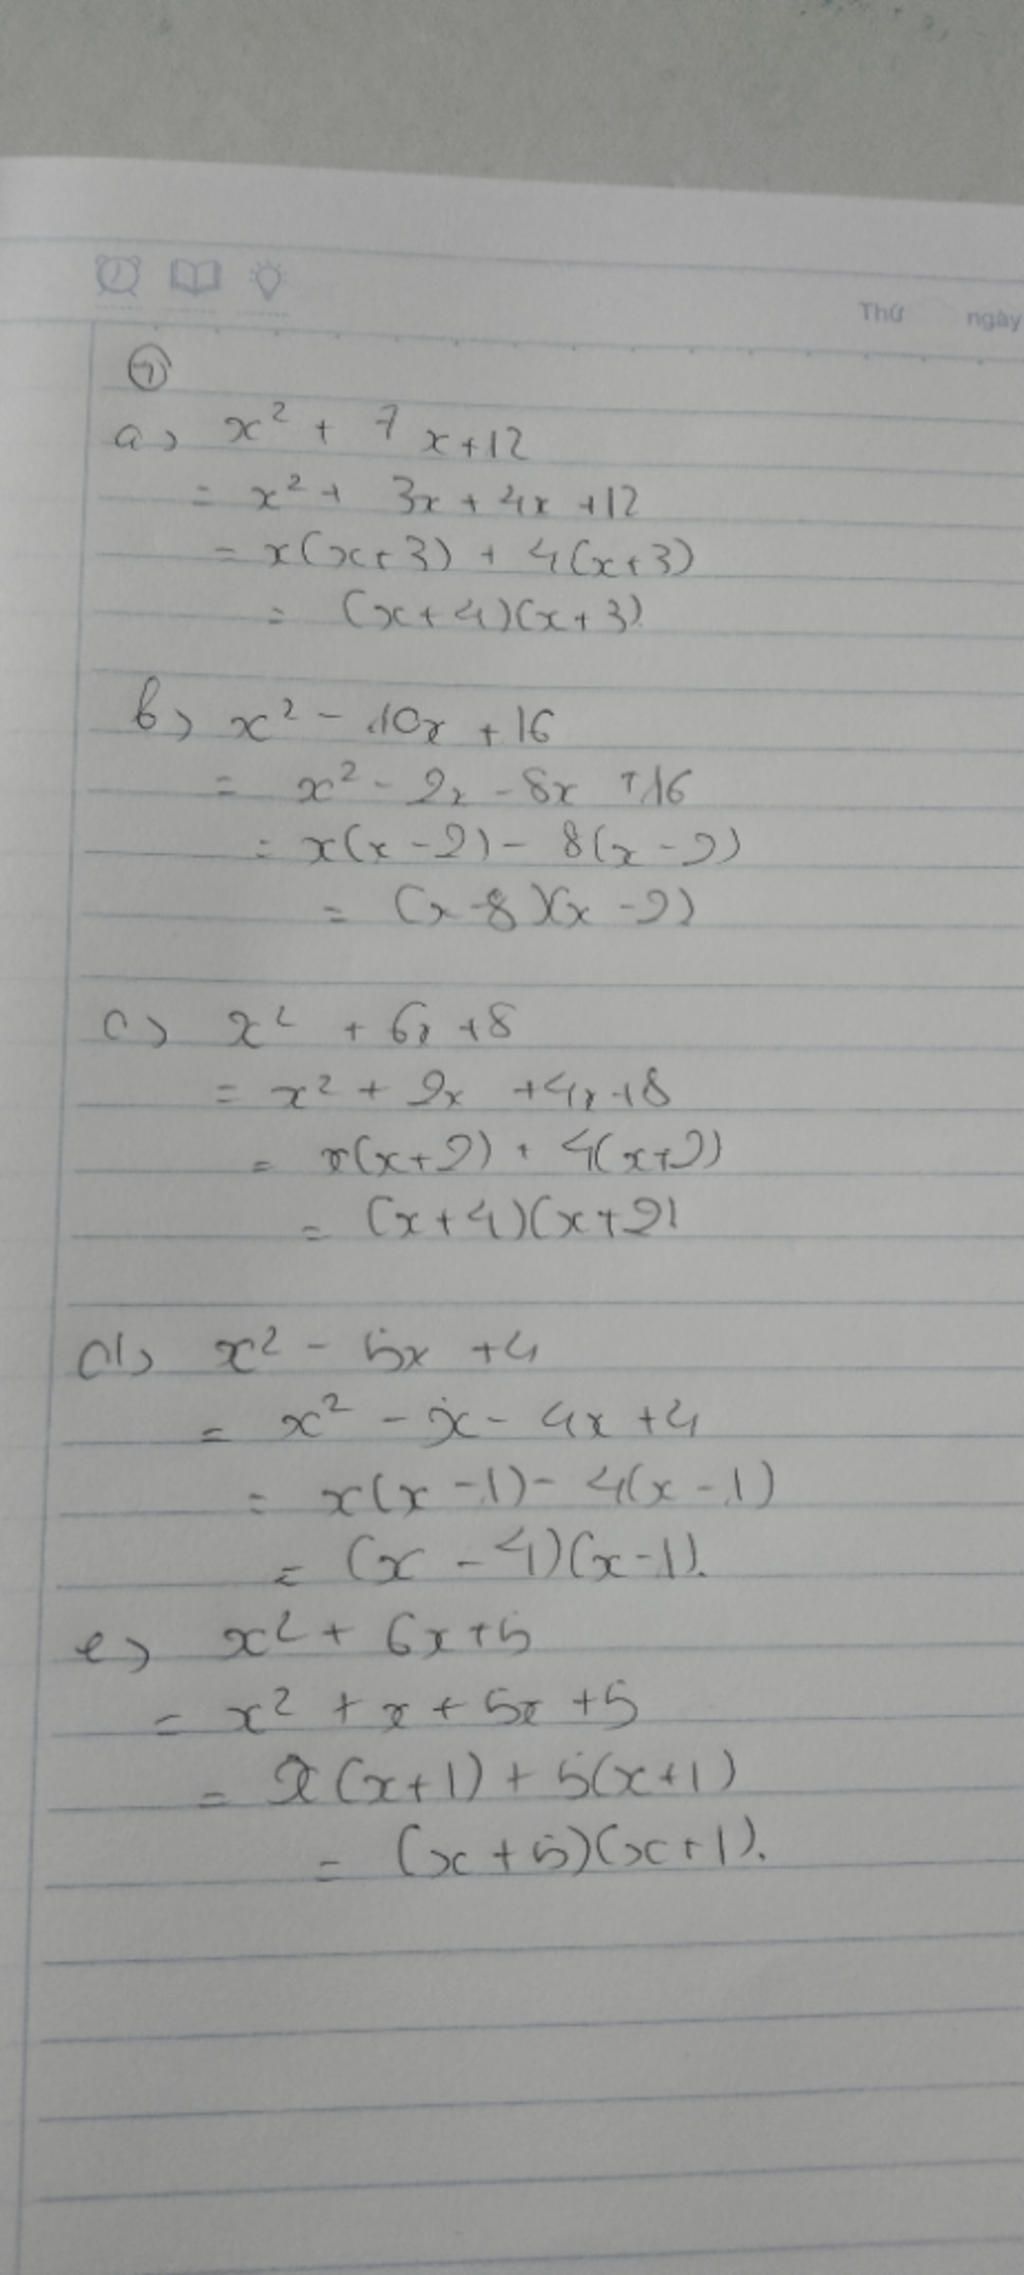 Thứ ngày
⑦
a) x² + 7x+12
= x² + 3x + 4x +12
= x(x+3) + 4(x+3)
= (x+4)(x+3)
b) x² - 10x + 16
= x² - 2x - 8x +16
= x(x-2) - 8(x-2)
= (x-8)(x-2)
c) x² + 6x +8
= x² + 2x +4x+8
= x(x+2) + 4(x+2)
= (x+4)(x+2)
d) x² - 5x +4
= x² - x - 4x +4
= x(x-1) - 4(x-1)
= (x-4)(x-1).
e) x² + 6x+5
= x² + x + 5x +5
= x(x+1) + 5(x+1)
= (x+5)(x+1).